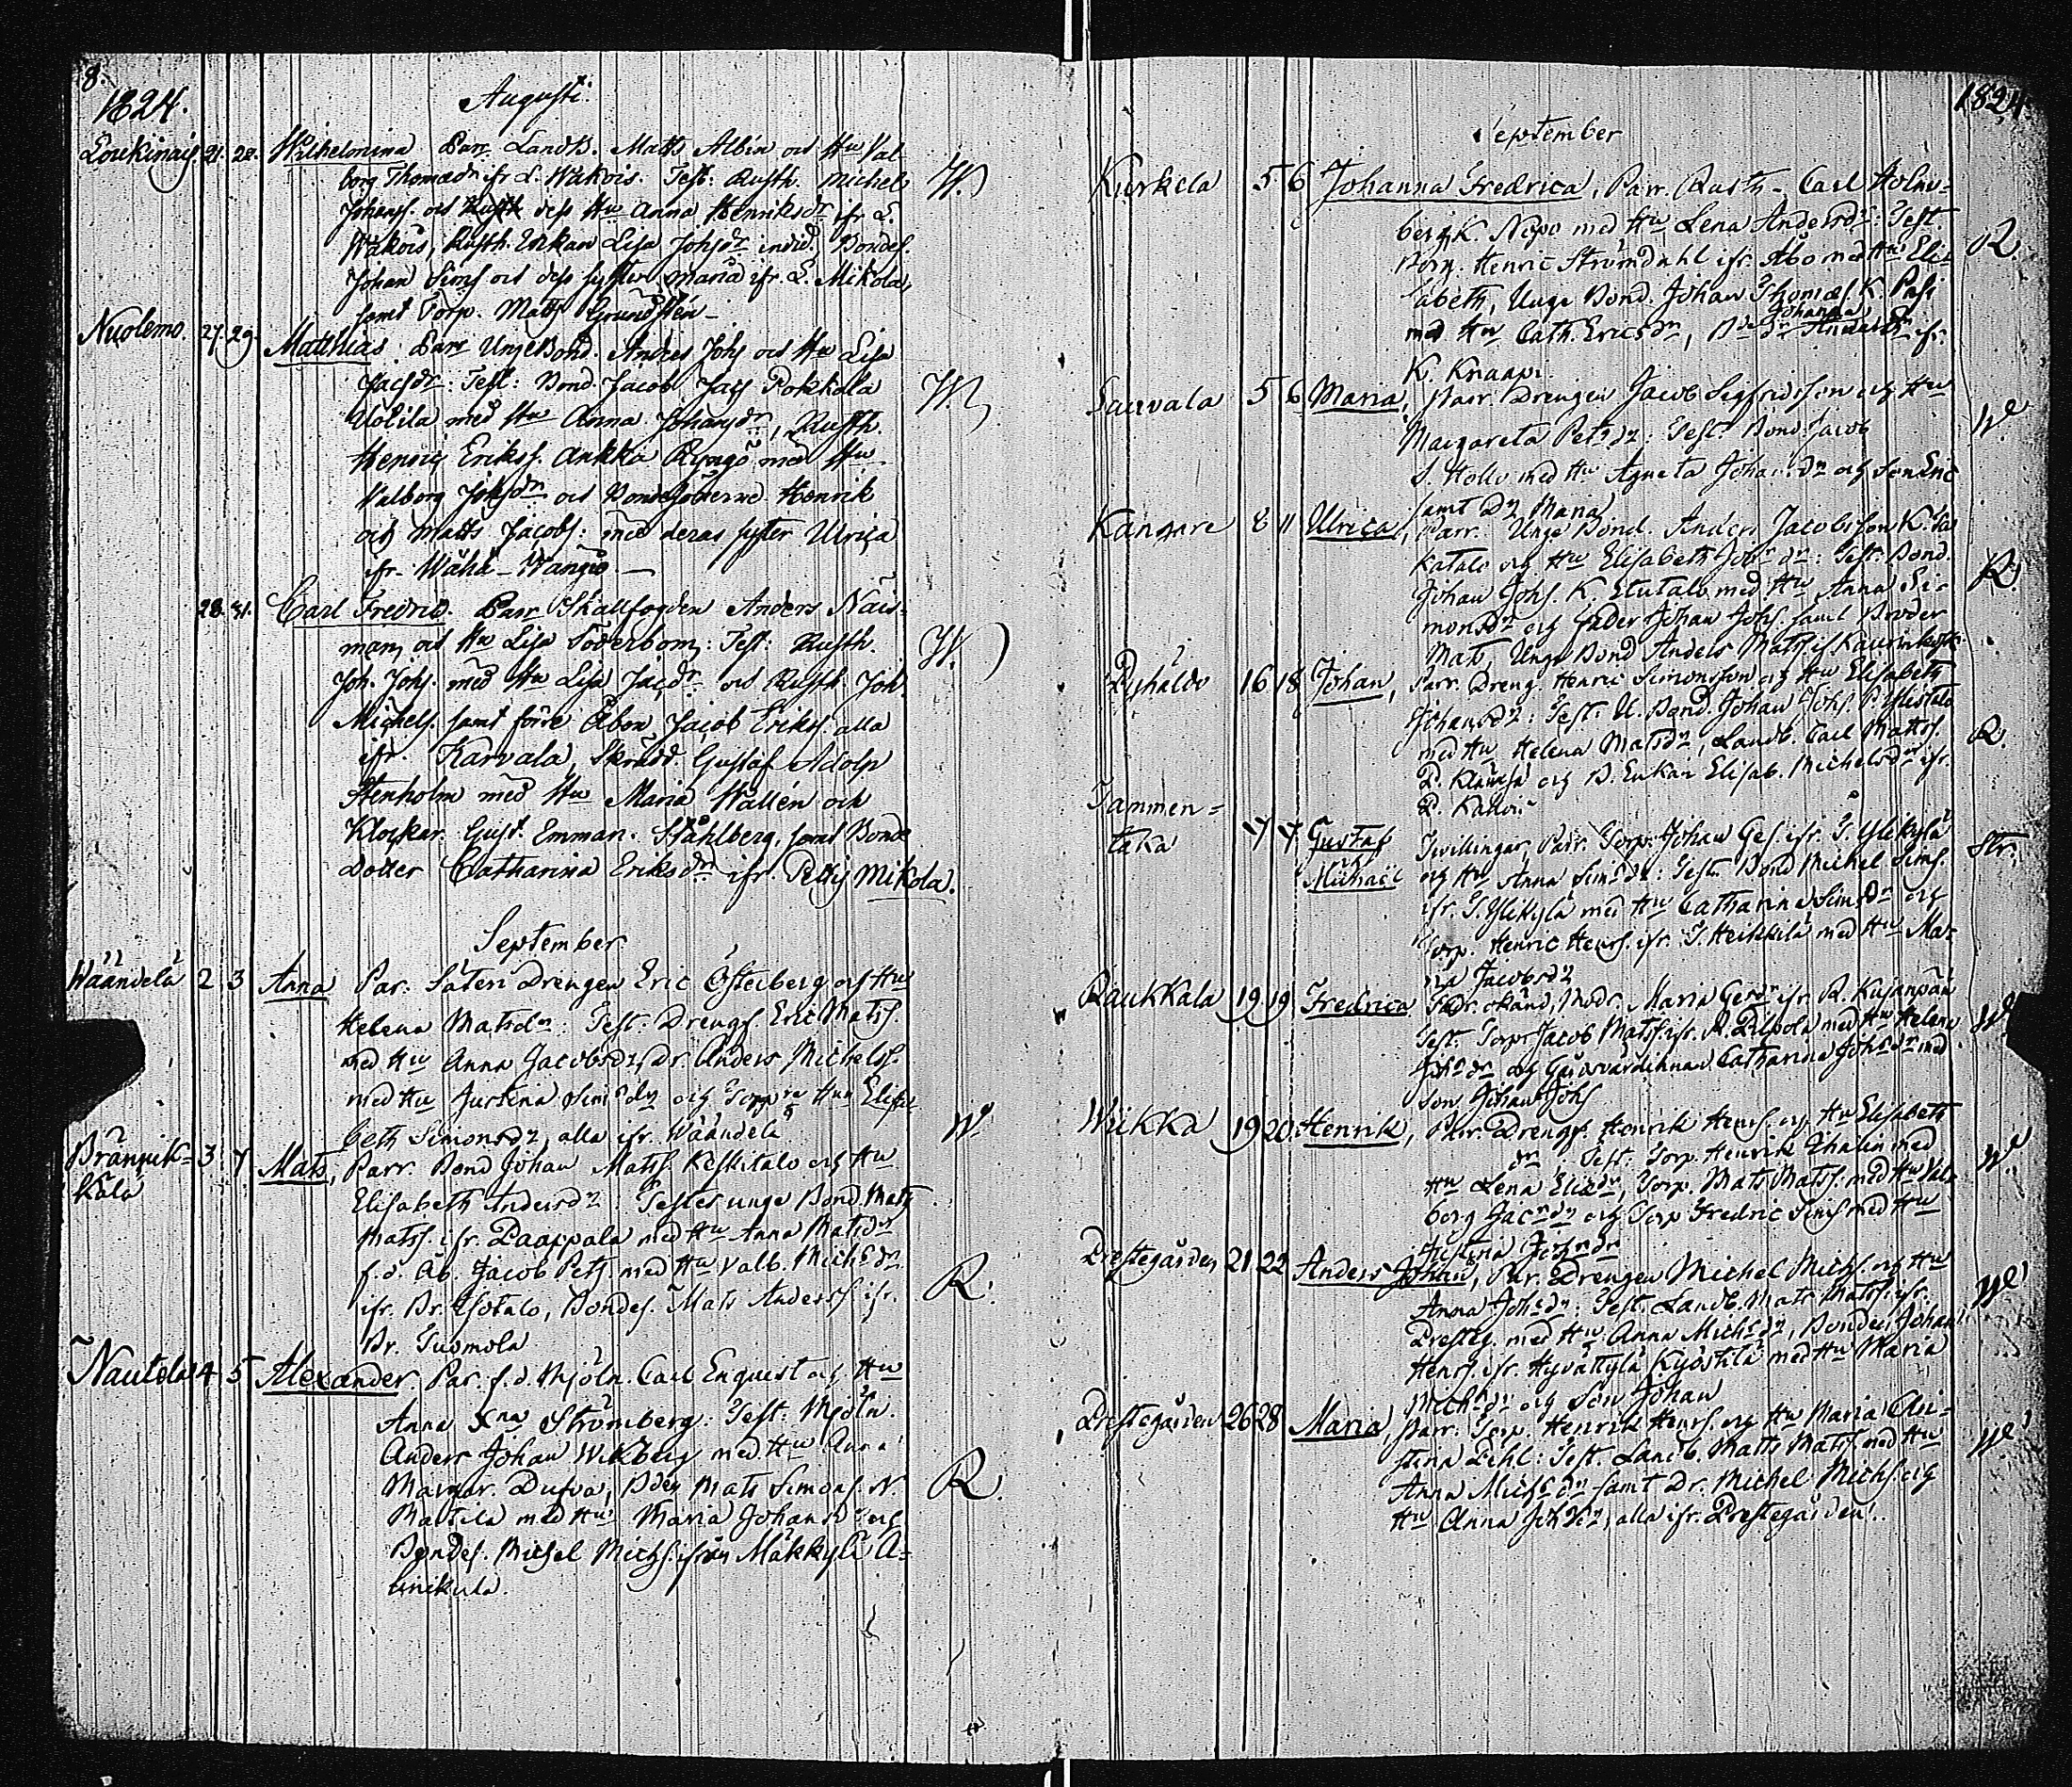 8.
1824.
Augusti.
Loukinais 21. 22. Wilhelmina. Parr Landb. Matts Albin och Hu Val-
borg Thomædr ifr L. Wäkois. Test: Rusth. Michel W.
Johanss. och dess Hu Anna Henriksdr ifr L.
Wäkois, Rusth. Enkan Lisa Johsdr Bondes.
Johan Sims och dess syster Maria ifr L. Mikola,
samt Torp. Matts Grundstén
Nuolemo. 27. 29. Matthias. Parr Unge Bond. Anders Johs och Hu Lisa
Jacsdr: Test: Bond. Jacob Jacs Pokkala W.
Uotila med Hu Anna Johansdr, Rusth.
Henric Erikss. Ankka med Hu
Valborg Johsdr och Bondesönerne Henrik
och Matts Jacobs: med deras syster Ulrica
ifr. Wähä-Wangio.
28. 31. Carl Fredric. Parr Skallfogden Anders Näs-
man och Hu Lisa Söderbom: Test: Rusth. W.
Joh. Johs. med Hu Lisa Jacsdr och Rusth. Joh.
Michels. samt förre Åbon Jacob Eriks. alla
ifr. Karvala, Skrädd. Gustaf Adolp
Stenholm med Hu Maria Wallén och
Klockar. Gust. Emman. Ståhlberg, samt Bonde
Dotter Catharina Eriksdr ifr. Mikola.
September
Wäändelä 2 3 Anna Par: Säteri Drengen Eric Österberg och Hu
Helena Matsdr: Test: Drengs. Eric Matss.
med Hu Anna Jacobsdr, dr. Anders Michelss.
med Hu Justina Simsdr och Hu Elisa-
beth Simonsdr, alla ifr. Wäändelä W.
Prännik- 3 7 Mats, Parr. Bond Johan Matss. Keskitalo och Hu
kälä
Elisabeth Andersdr: Testes unge Bond. Mats
Matss. ifr. Paappala med Hu Anna Matsdr
f.d. Åb. Jacob Pets. med Hu Valb. Michsdr
ifr. Pr. Isotalo, Bondes. Mats Anderss ifr. R.
Pr. Tuomola
Nautela 4 5 Alexander. Par. f.d. Mjöln. Carl Enquist och Hu
Anna Strömberg. Test: Mjöln.
Anders Johan Wikberg med Hu Anna
Margar. Dufva, Mats Simons. N. R.
Mattila med Hu Maria Johansdr och
Bondes. Michel Michs. ifrån Mäkkylä A-
linikula.
1824
September
Kurkela 5. 6 Johanna Fredrica, Parr. Rusth. Carl Holm-
berg K. Nepo med Hu Lena Andersdr: Test.
Borg. Henric Strömdahl ifr. Åbo med Hu Eli- R.
sabeth, Unge Bond. Johan Thomæs. K. Passi
Johanna
med Hu Cath. Ericsdr, ifr.
K. Knaapi.
Sauvala 5 6 Maria, Parr Drengen Jacob Segfridsson och Hu
Margareta Petsdr: Test: Bond. Jacob W.
S. Hollo med Hu Agneta Johansdr och son Eric
samt Dr Maria
Kangare 8 11 Ulrica, Parr. Unge Bond. Anders Jacobsson K.
katalo och Hu Elisabeth Johsdr: Test. Bond.
Johan Johs. K. Etutalo med Hu Anna Si- R.
monsdr och Fader Johan Johs. samt Broder
Mats, Unge Bond Anders Matss ifr
Pyhäldö 16 18 Johan, Parr. Dreng. Henric Simonsson och Hu Elisabeth
Johansdr: Test. U. Bond. Johan Johs. P.
med Hu Helena Matsdr, Landb. Carl Matss. R.
P. och B. Enkan Elisab. Michelsdr ifr.
P.
Tammen-
taka 17 17 Gustaf Tvillingar, Parr. Torp. Johan Ges. ifr. T. Ylikylä Str.
Michaël och Hu Anna Simsdr: Test. Bond Michel Sims.
ifr. T. Ylikylä med Hu Catharina Simsdr och
Torp. Henric Henrs. ifr. T. Heikkilä med Hu Ma-
ria Jacobsdr
Raukkala 19 19 Fredrica Fadr. okänd, Modr. Maria Gersdr ifr R. Kujanpää
Test. Torp Jacob Matss. ifr. R. med Hu Helena W.
Johsdr och Gårdsvärdinnan Catharina Johsdr med
son Johan Johs
Wiikka 19 20. Henrik, Parr. Drengs. Henrik Henrs. och Hu Elisabeth
dr Test. Torp. Henrik Thalin med
Hu Lena Eliædr, Torp. Mats Matss. med Hu Val- W.
borg Jacsdr och Torp Fredric Sims med Hu
Justina Johsdr
Prestegården 21 22 Anders Johan, Par. Drengen Michel Michs. och Hu
Anna Johsdr: Test. Landb. Mats Matss. ifr. W.
Presteg. med Hu Anna Michsdr, Bonden Johan
Henrs. ifr. Hyvättylä Kyöstilä med Hu Maria
Michsdr och Son Johan
Prestegården 26 28 Maria, Parr. Torp. Henrik Henrs. och Hu Maria Cri-
stina Pihl: Test. Landb. Matts Matss med Hu W.
Anna Michsdr samt Dr. Michel Michs. och
Hu Anna Johsdr, alla ifr. Prestegården.